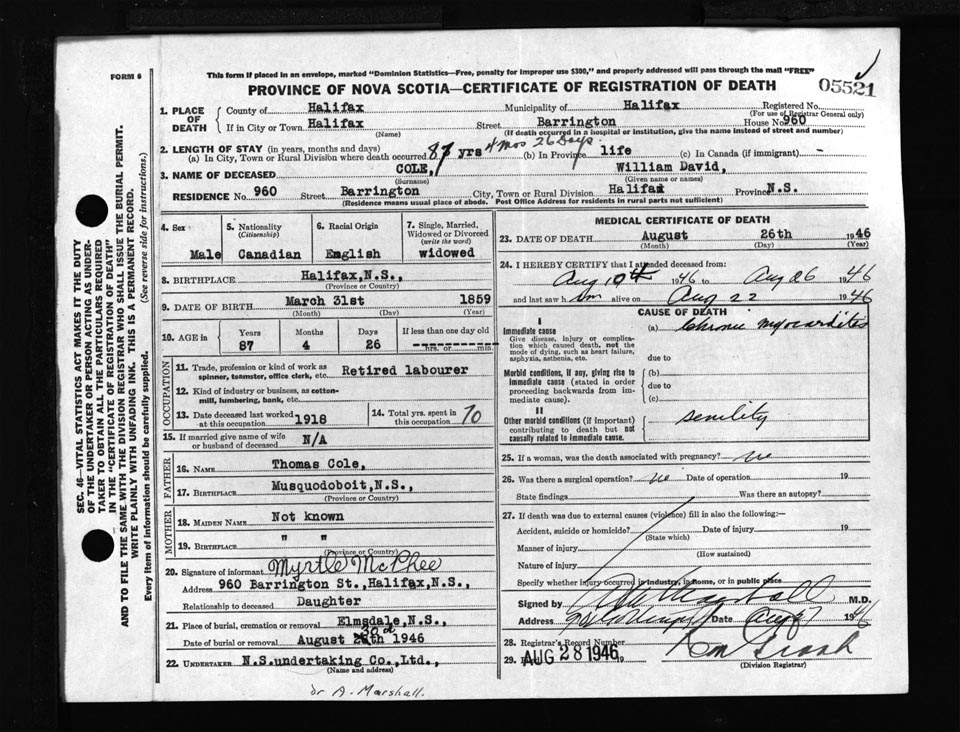 FORM 6
This form if placed in an envelope, marked "Dominion Statistics—Free, penalty for improper use $300," and properly addressed will pass through the mail "FREE"
PROVINCE OF NOVA SCOTIA—CERTIFICATE OF REGISTRATION OF DEATH
05521
SEC. 46—VITAL STATISTICS ACT MAKES IT THE DUTY
OF THE UNDERTAKER OR PERSON ACTING AS UNDER-
TAKER TO OBTAIN ALL THE PARTICULARS REQUIRED
IN THE "CERTIFICATE OF REGISTRATION OF DEATH"
AND TO FILE THE SAME WITH THE DIVISION REGISTRAR WHO SHALL ISSUE THE BURIAL PERMIT.
WRITE PLAINLY WITH UNFADING INK. THIS IS A PERMANENT RECORD.
Every item of information should be carefully supplied. (See reverse side for instructions.)
1. PLACE OF DEATH County of Halifax Municipality of Halifax Registered No.
(For use of Registrar General only)
If in City or Town Halifax Street Barrington House No. 960
(Name) (If death occurred in a hospital or institution, give the name instead of street and number)
2. LENGTH OF STAY (in years, months and days)
(a) In City, Town or Rural Division where death occurred 87 yrs 4 mos 26 days (b) In Province life (c) In Canada (if immigrant) -
3. NAME OF DECEASED COLE, William David,
(Surname) (Given name or names)
RESIDENCE No. 960 Street Barrington City, Town or Rural Division Halifax Province N.S.
(Residence means usual place of abode. Post Office Address for residents in rural parts not sufficient)
4. Sex Male
5. Nationality (Citizenship) Canadian
6. Racial Origin English
7. Single, Married, Widowed or Divorced (write the word) widowed
8. BIRTHPLACE Halifax, N.S.,
(Province or Country)
9. DATE OF BIRTH March 31st 1859
(Month) (Day) (Year)
10. AGE in Years 87 Months 4 Days 26 If less than one day old hrs. or min.
OCCUPATION
11. Trade, profession or kind of work as spinner, teamster, office clerk, etc. Retired labourer
12. Kind of industry or business, as cotton-mill, lumbering, bank, etc.
13. Date deceased last worked at this occupation 1918
14. Total yrs. spent in this occupation 70
15. If married give name of wife or husband of deceased N/A
FATHER
16. NAME Thomas Cole,
17. BIRTHPLACE Musquodoboit, N.S.,
(Province or Country)
MOTHER
18. MAIDEN NAME Not known
19. BIRTHPLACE " "
(Province or Country)
20. Signature of informant Myrtle McPhee
Address 960 Barrington St., Halifax, N.S.,
Relationship to deceased Daughter
21. Place of burial, cremation or removal Elmsdale, N.S.,
Date of burial or removal August 30th 1946
22. UNDERTAKER N.S.undertaking Co.,Ltd.,
(Name and address)
dr A. Marshall.
MEDICAL CERTIFICATE OF DEATH
23. DATE OF DEATH August 26th 1946
(Month) (Day) (Year)
24. I HEREBY CERTIFY that I attended deceased from:
Aug 10th 1946 to Aug 26 1946
and last saw him alive on Aug 22 1946
CAUSE OF DEATH
I
Immediate cause
Give disease, injury or complication which caused death, not the mode of dying, such as heart failure, asphyxia, asthenia, etc.
(a) Chronic myocarditis
due to
Morbid conditions, if any, giving rise to immediate cause (stated in order proceeding backwards from immediate cause).
(b)
due to
(c)
II
Other morbid conditions (if important) contributing to death but not causally related to immediate cause.
senility
25. If a woman, was the death associated with pregnancy? no
26. Was there a surgical operation? no Date of operation 19
State findings Was there an autopsy?
27. If death was due to external causes (violence) fill in also the following:—
Accident, suicide or homicide? Date of injury 19
(State which)
Manner of injury
(How sustained)
Nature of injury
Specify whether injury occurred in industry, in home, or in public place
Signed by Marshall M.D.
Address Date Aug 27 1946
28. Registrar's Record Number
29. AUG 28 1946 19
(Division Registrar)